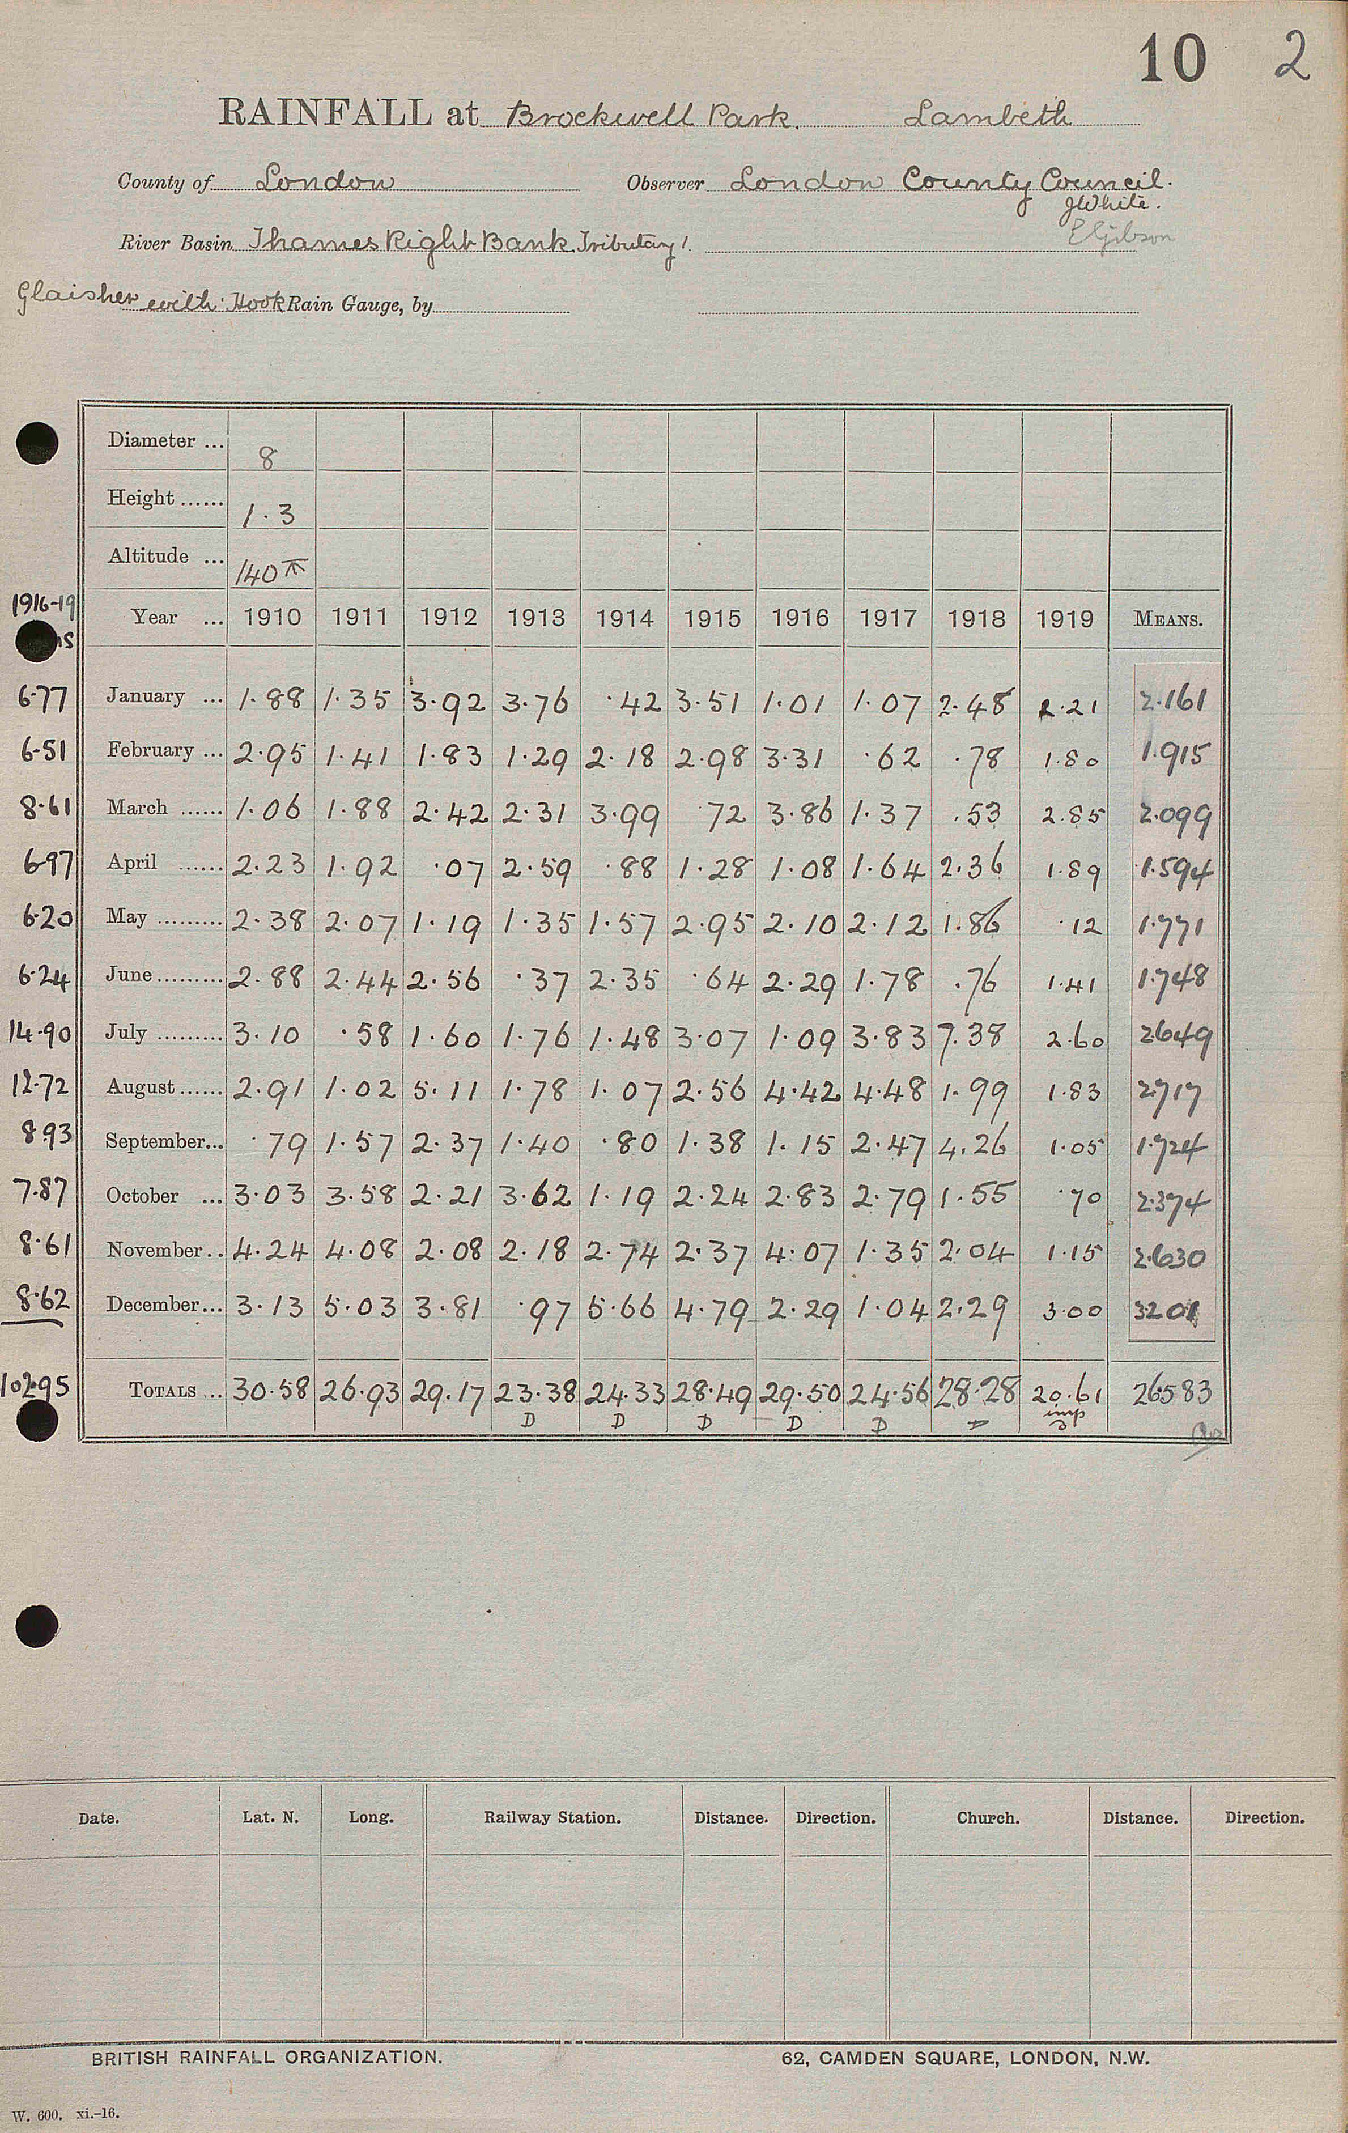 10 2
RAINFALL at Brockwell Park. Lambeth
County of London Observer London County Council.
JWhite.
River Basin Thames Right Bank. Tributary 1. EGibson
Glaisher with Hook Rain Gauge, by
Diameter ... 8
Height ...... 1.3
Altitude ... 140 ft
1916-19 Year ... 1910 1911 1912 1913 1914 1915 1916 1917 1918 1919 MEANS.
6.77 January ... 1.88 1.35 3.92 3.76 .42 3.51 1.01 1.07 2.48 2.21 2.161
6.51 February ... 2.95 1.41 1.83 1.29 2.18 2.98 3.31 .62 .78 1.80 1.915
8.61 March ...... 1.06 1.88 2.42 2.31 3.99 .72 3.86 1.37 .53 2.85 2.099
6.97 April ...... 2.23 1.92 .07 2.59 .88 1.28 1.08 1.64 2.36 1.89 1.594
6.20 May ......... 2.38 2.07 1.19 1.35 1.57 2.95 2.10 2.12 1.86 .12 1.771
6.24 June ......... 2.88 2.44 2.56 .37 2.35 .64 2.29 1.78 .76 1.41 1.748
14.90 July ......... 3.10 .58 1.60 1.76 1.48 3.07 1.09 3.83 7.38 2.60 2649
12.72 August ...... 2.91 1.02 5.11 1.78 1.07 2.56 4.42 4.48 1.99 1.83 2717
8.93 September... .79 1.57 2.37 1.40 .80 1.38 1.15 2.47 4.26 1.05 1.724
7.87 October ... 3.03 3.58 2.21 3.62 1.19 2.24 2.83 2.79 1.55 .70 2.374
8.61 November .. 4.24 4.08 2.08 2.18 2.74 2.37 4.07 1.35 2.04 1.15 2.630
8.62 December... 3.13 5.03 3.81 .97 5.66 4.79 2.29 1.04 2.29 3.00 3201
102.95 TOTALS ... 30.58 26.93 29.17 23.38 24.33 28.49 29.50 24.56 28.28 20.61 26583
D D D D D D imp
Date. Lat. N. Long. Railway Station. Distance. Direction. Church. Distance. Direction.
BRITISH RAINFALL ORGANIZATION. 62, CAMDEN SQUARE, LONDON, N.W.
W. 600. xi.-16.